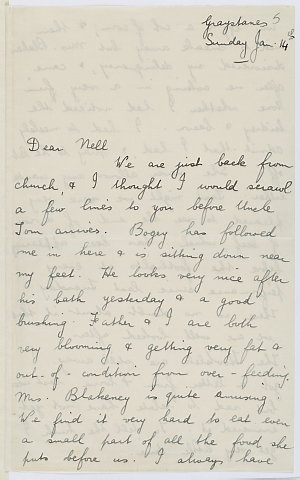 Graystanes
Sunday Jan. 14th
Dear Nell
We are just back from
church, & I thought I would scrawl
a few lines to you before Uncle
Tom arrives. Bogey has followed
me in here & is sitting down near
my feet. He looks very nice after
his bath yesterday & a good
brushing. Father & I are both
very blooming & getting very fat &
out-of-condition from over-feeding.
Mrs. Blakeney is quite amusing.
We find it very hard to eat even
a small part of all the food she
puts before us. I always have